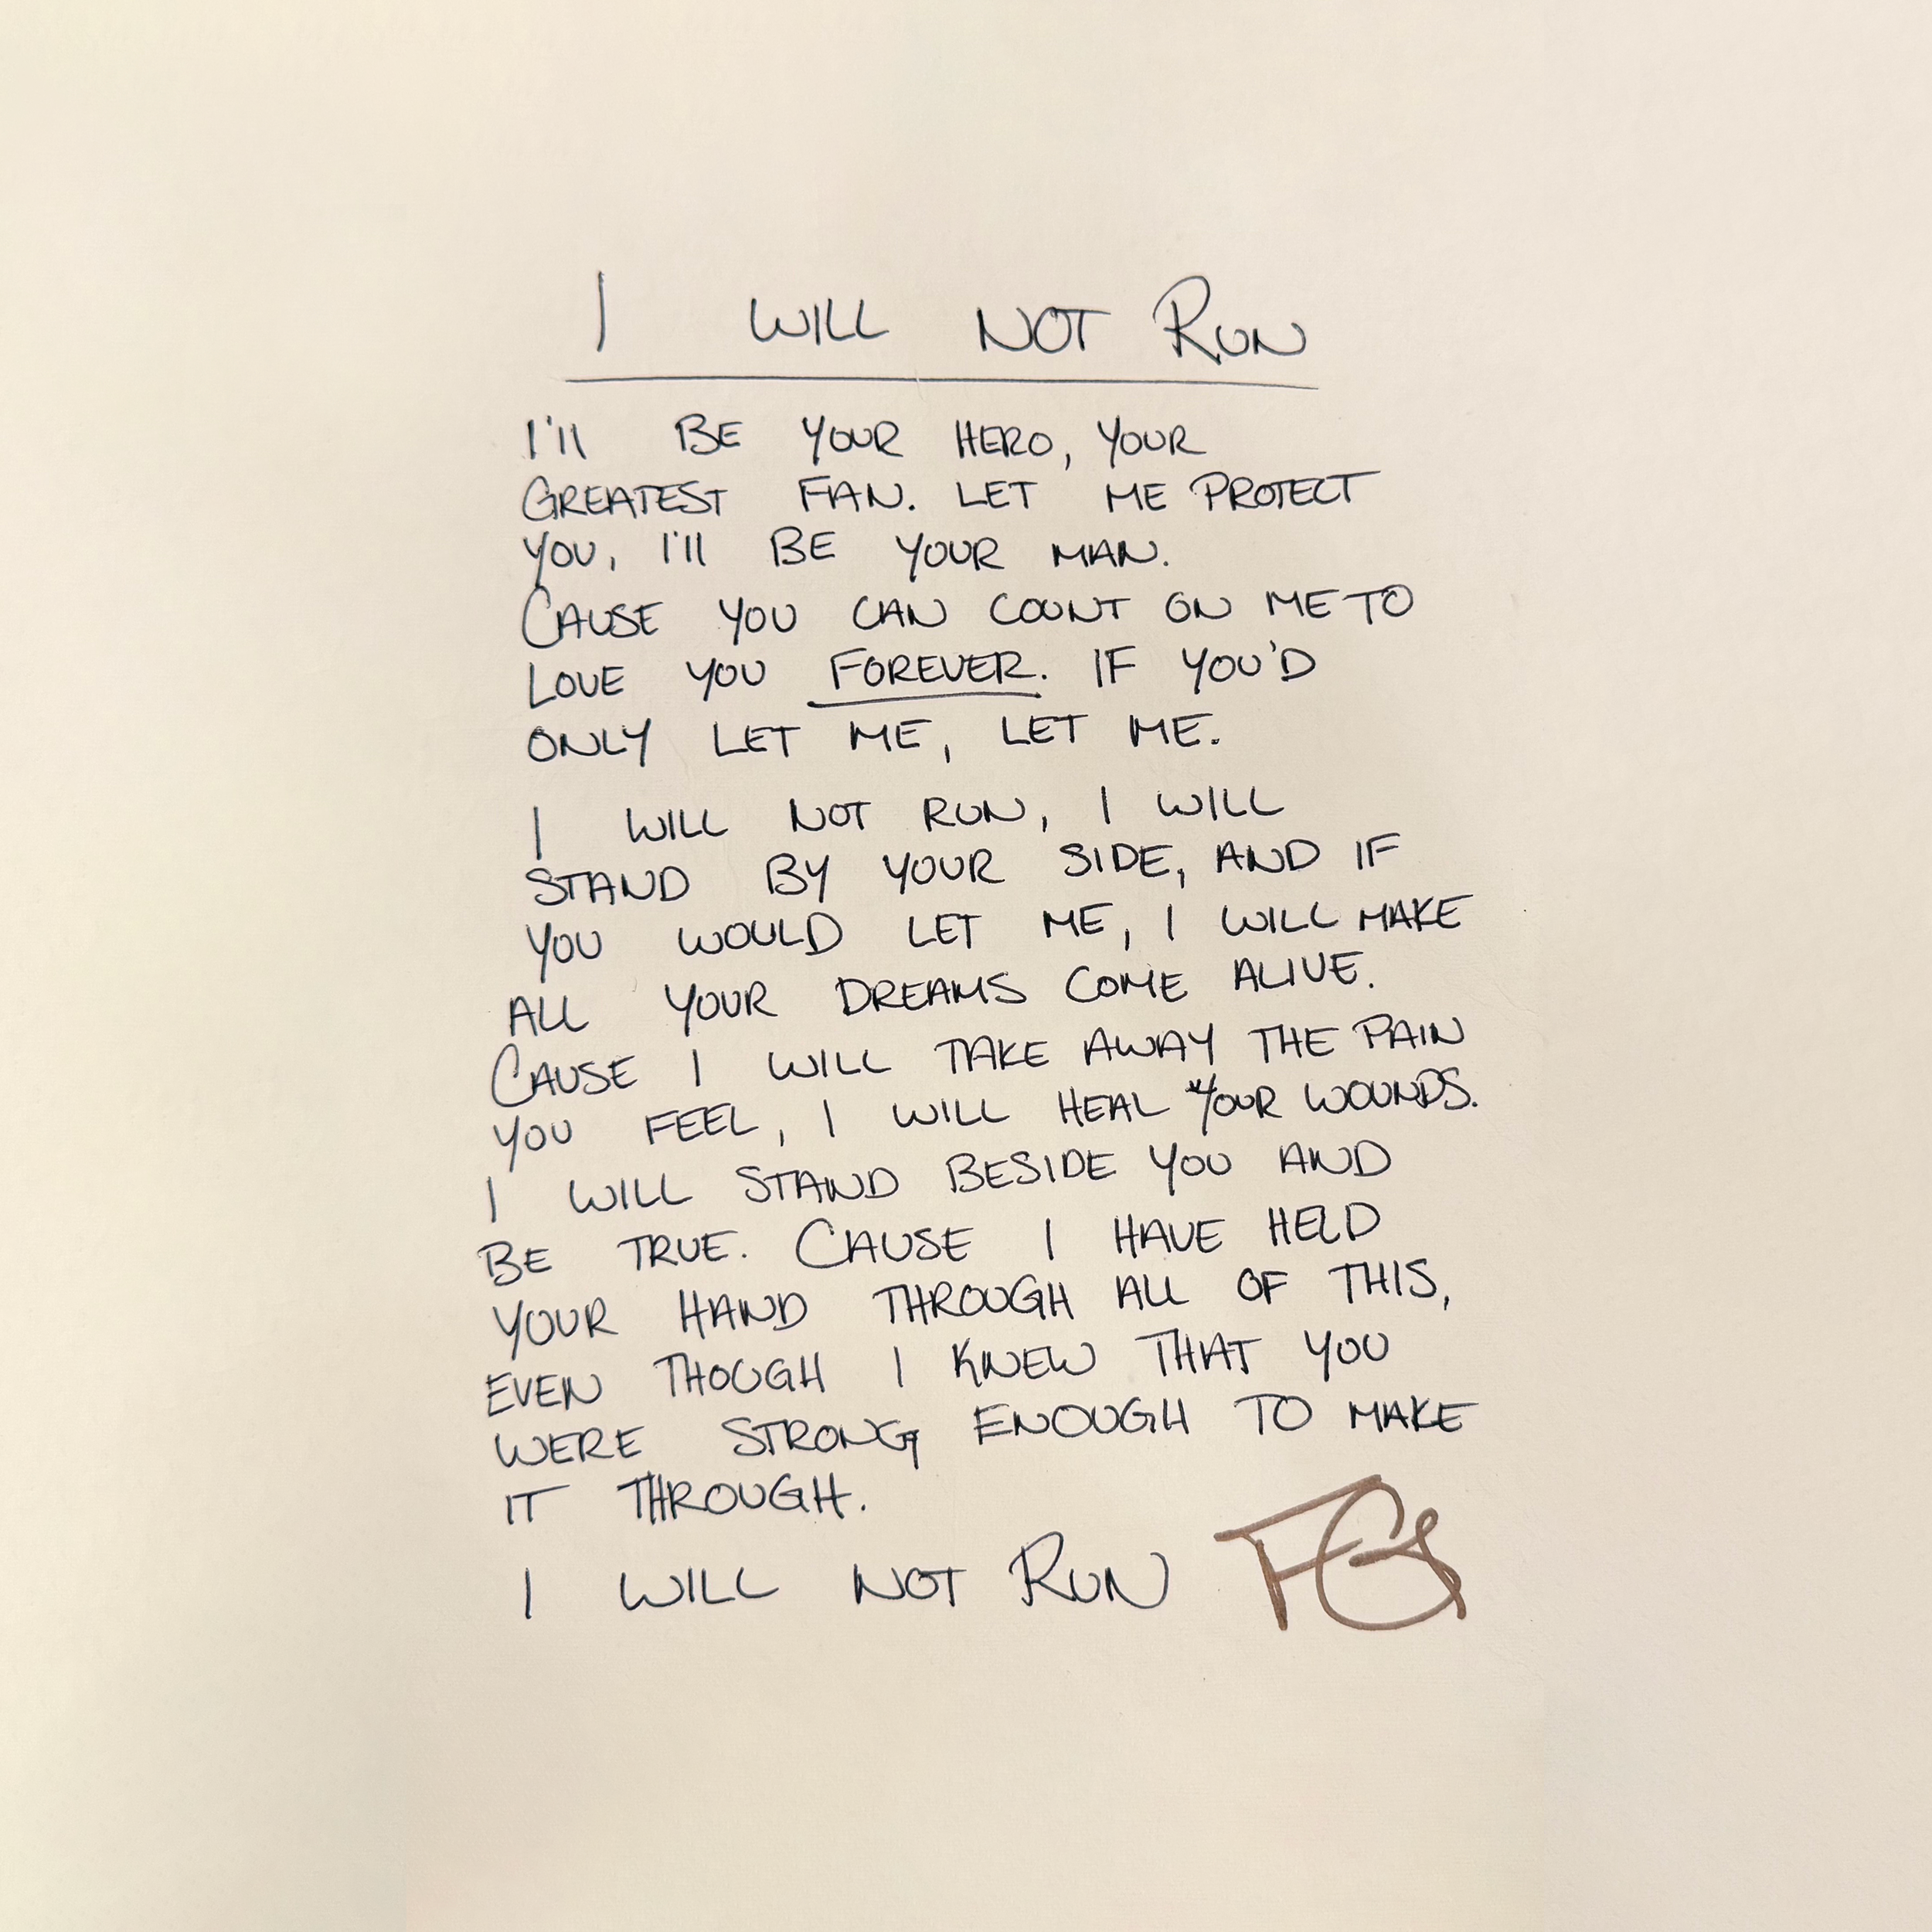 I WILL NOT RUN
I'll BE YOUR HERO, YOUR
GREATEST FAN. LET ME PROTECT
YOU, I'll BE YOUR MAN.
CAUSE YOU CAN COUNT ON ME TO
LOVE YOU FOREVER. IF YOU'D
ONLY LET ME, LET ME.
I WILL NOT RUN, I WILL
STAND BY YOUR SIDE, AND IF
YOU WOULD LET ME, I WILL MAKE
ALL YOUR DREAMS COME ALIVE.
CAUSE I WILL TAKE AWAY THE PAIN
YOU FEEL, I WILL HEAL YOUR WOUNDS.
I WILL STAND BESIDE YOU AND
BE TRUE. CAUSE I HAVE HELD
YOUR HAND THROUGH ALL OF THIS,
EVEN THOUGH I KNEW THAT YOU
WERE STRONG ENOUGH TO MAKE
IT THROUGH.
I WILL NOT RUN